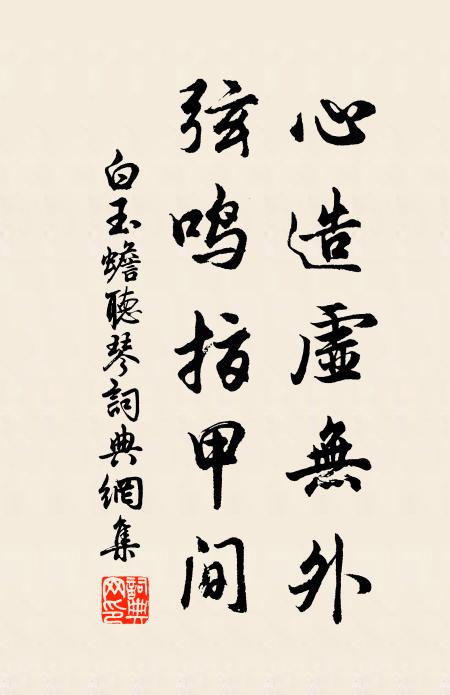 心造虛無外
弦鳴指甲間
白玉蟾聽琴詞典網集
詞典網印